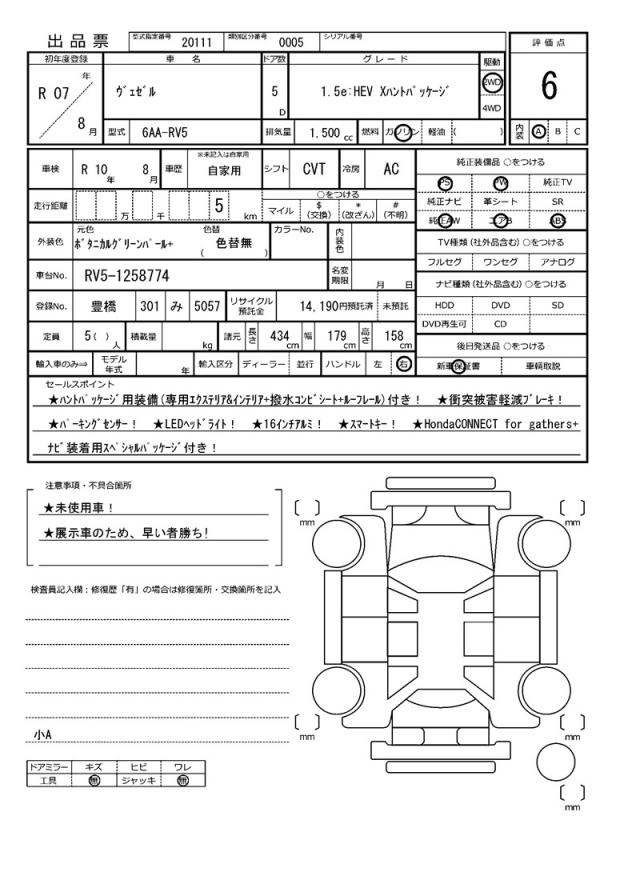 出品票 型式指定番号 20111 類別区分番号 0005 シリアル番号
評価点
6
内装 A B C
初年度登録 車名 ドア数 グレード 駆動
R 07 年 8 月 ヴェゼル 5 D 1.5e:HEV Xハントパッケージ 2WD 4WD
型式 6AA-RV5 排気量 1.500 cc 燃料 ガソリン 軽油 ( )
車検 R 10 年 8 月 車歴 ※未記入は自家用 自家用 シフト CVT 冷房 AC
走行距離 万 千 5 km ○をつける
マイル $(交換) *(改ざん) #(不明)
外装色 元色 ボタニカルグリーンパール+ 色替 ( 色替無 ) カラーNo. 内装色
車台No. RV5-1258774 名変期限 月 日
登録No. 豊橋 301 み 5057 リサイクル預託金 14,190円預託済 未預託
定員 5( )人 積載量 kg 諸元 長さ 434 cm 幅 179 cm 高さ 158 cm
輸入車のみ⇒ モデル年式 年 輸入区分 ディーラー 並行 ハンドル 左 右
純正装備品 ○をつける
PS PW 純正TV
純正ナビ 革シート SR
純正AW エアB ABS
TV種類 (社外品含む) ○をつける
フルセグ ワンセグ アナログ
ナビ種類 (社外品含む) ○をつける
HDD DVD SD
DVD再生可 CD
後日発送品 ○をつける
新車保証書 車輌取説
セールスポイント
★ハントパッケージ用装備(専用エクステリア&インテリア+撥水コンビシート+ルーフレール)付き! ★衝突被害軽減ブレーキ!
★パーキングセンサー! ★LEDヘッドライト! ★16インチアルミ! ★スマートキー! ★HondaCONNECT for gathers+
ナビ装着用スペシャルパッケージ付き!
注意事項・不具合箇所
★未使用車!
★展示車のため、早い者勝ち!
検査員記入欄:修復歴「有」の場合は修復箇所・交換箇所を記入
小A
ドアミラー キズ ヒビ ワレ
工具 無 ジャッキ 無
[ ] mm
[ ] mm
[ ] mm
[ ] mm
[ ] mm